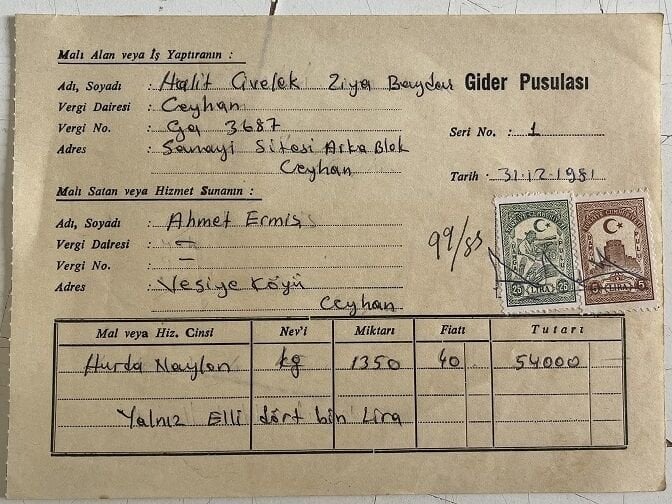 Malı Alan veya İş Yaptıranın :
Adı, Soyadı : Halit Civelek Ziya Baydar
Gider Pusulası
Vergi Dairesi : Ceyhan
Vergi No. : Ga 3687
Seri No. : 1
Adres : Sanayi Sitesi Arka Blok
Ceyhan
Tarih : 31.12.1981
Malı Satan veya Hizmet Sunanın :
Adı, Soyadı : Ahmet Ermiş
Vergi Dairesi : -
Vergi No. : -
Adres : Veysiye Köyü
Ceyhan
99/83
25 LİRA 25
5 LİRA 5
Mal veya Hiz. Cinsi Nev'i Miktarı Fiatı Tutarı
Hurda Naylon kg 1350 40 54000
Yalnız Elli dört bin Lira